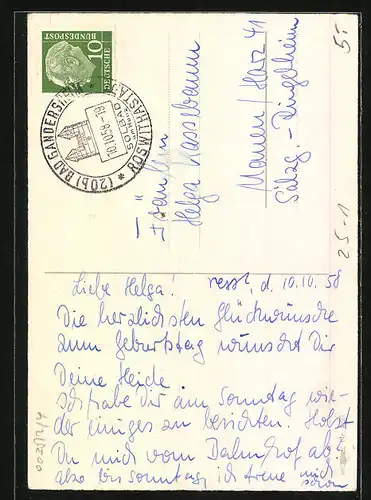 10
DEUTSCHE
BUNDESPOST
(20b) BAD GANDERSHEIM
ROSWITHASTADT
SOLBAD
10.10.58-19
Helga Kasselbaum
Salzg.-Ringelheim
5-
25-11
Liebe Helga! d. 10.10.58
Die herzlichsten Glückwünsche
zum Geburtstag wünscht Dir
Deine Heide
habe dir am Sonntag wie-
der einiges zu berichten. Holst
Du mich vom Bahnhof ab
also bis Sonntag, ich freue mich
schon